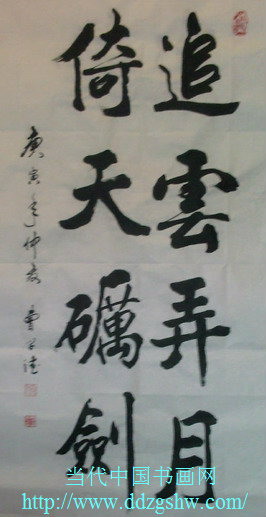 追雲弄月
倚天礪劍
庚寅年仲春
当代中国书画网
http://www.ddzgshw.com/